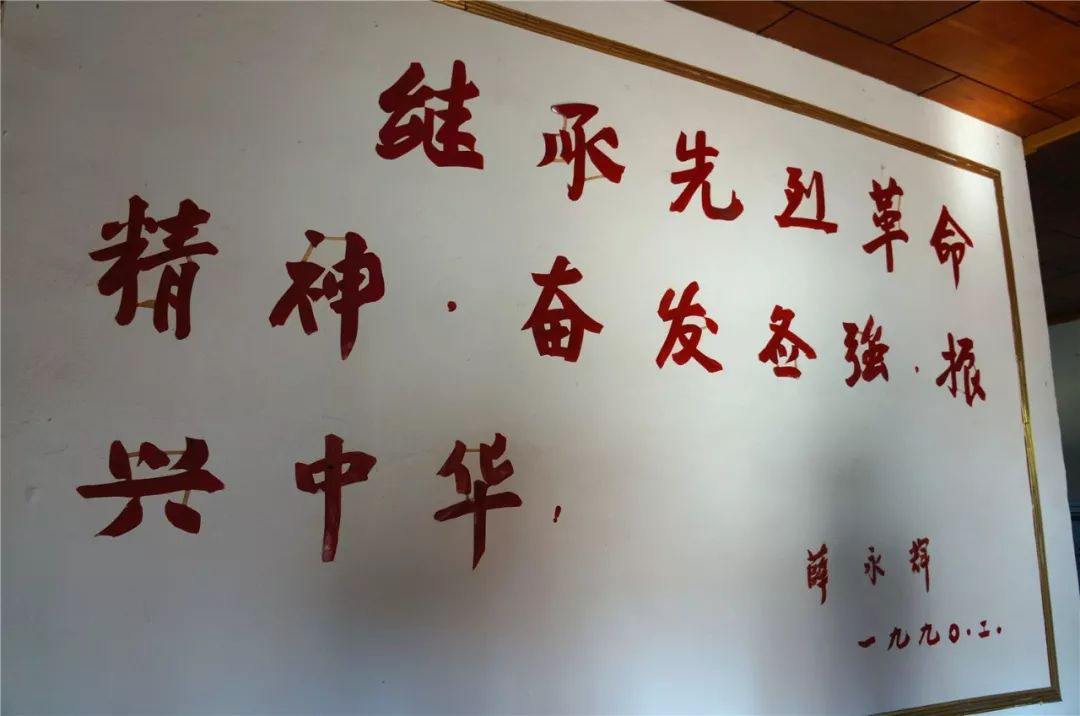 继承先烈革命
精神，奋发图强，振
兴中华！
薛永辉
一九九〇.二.